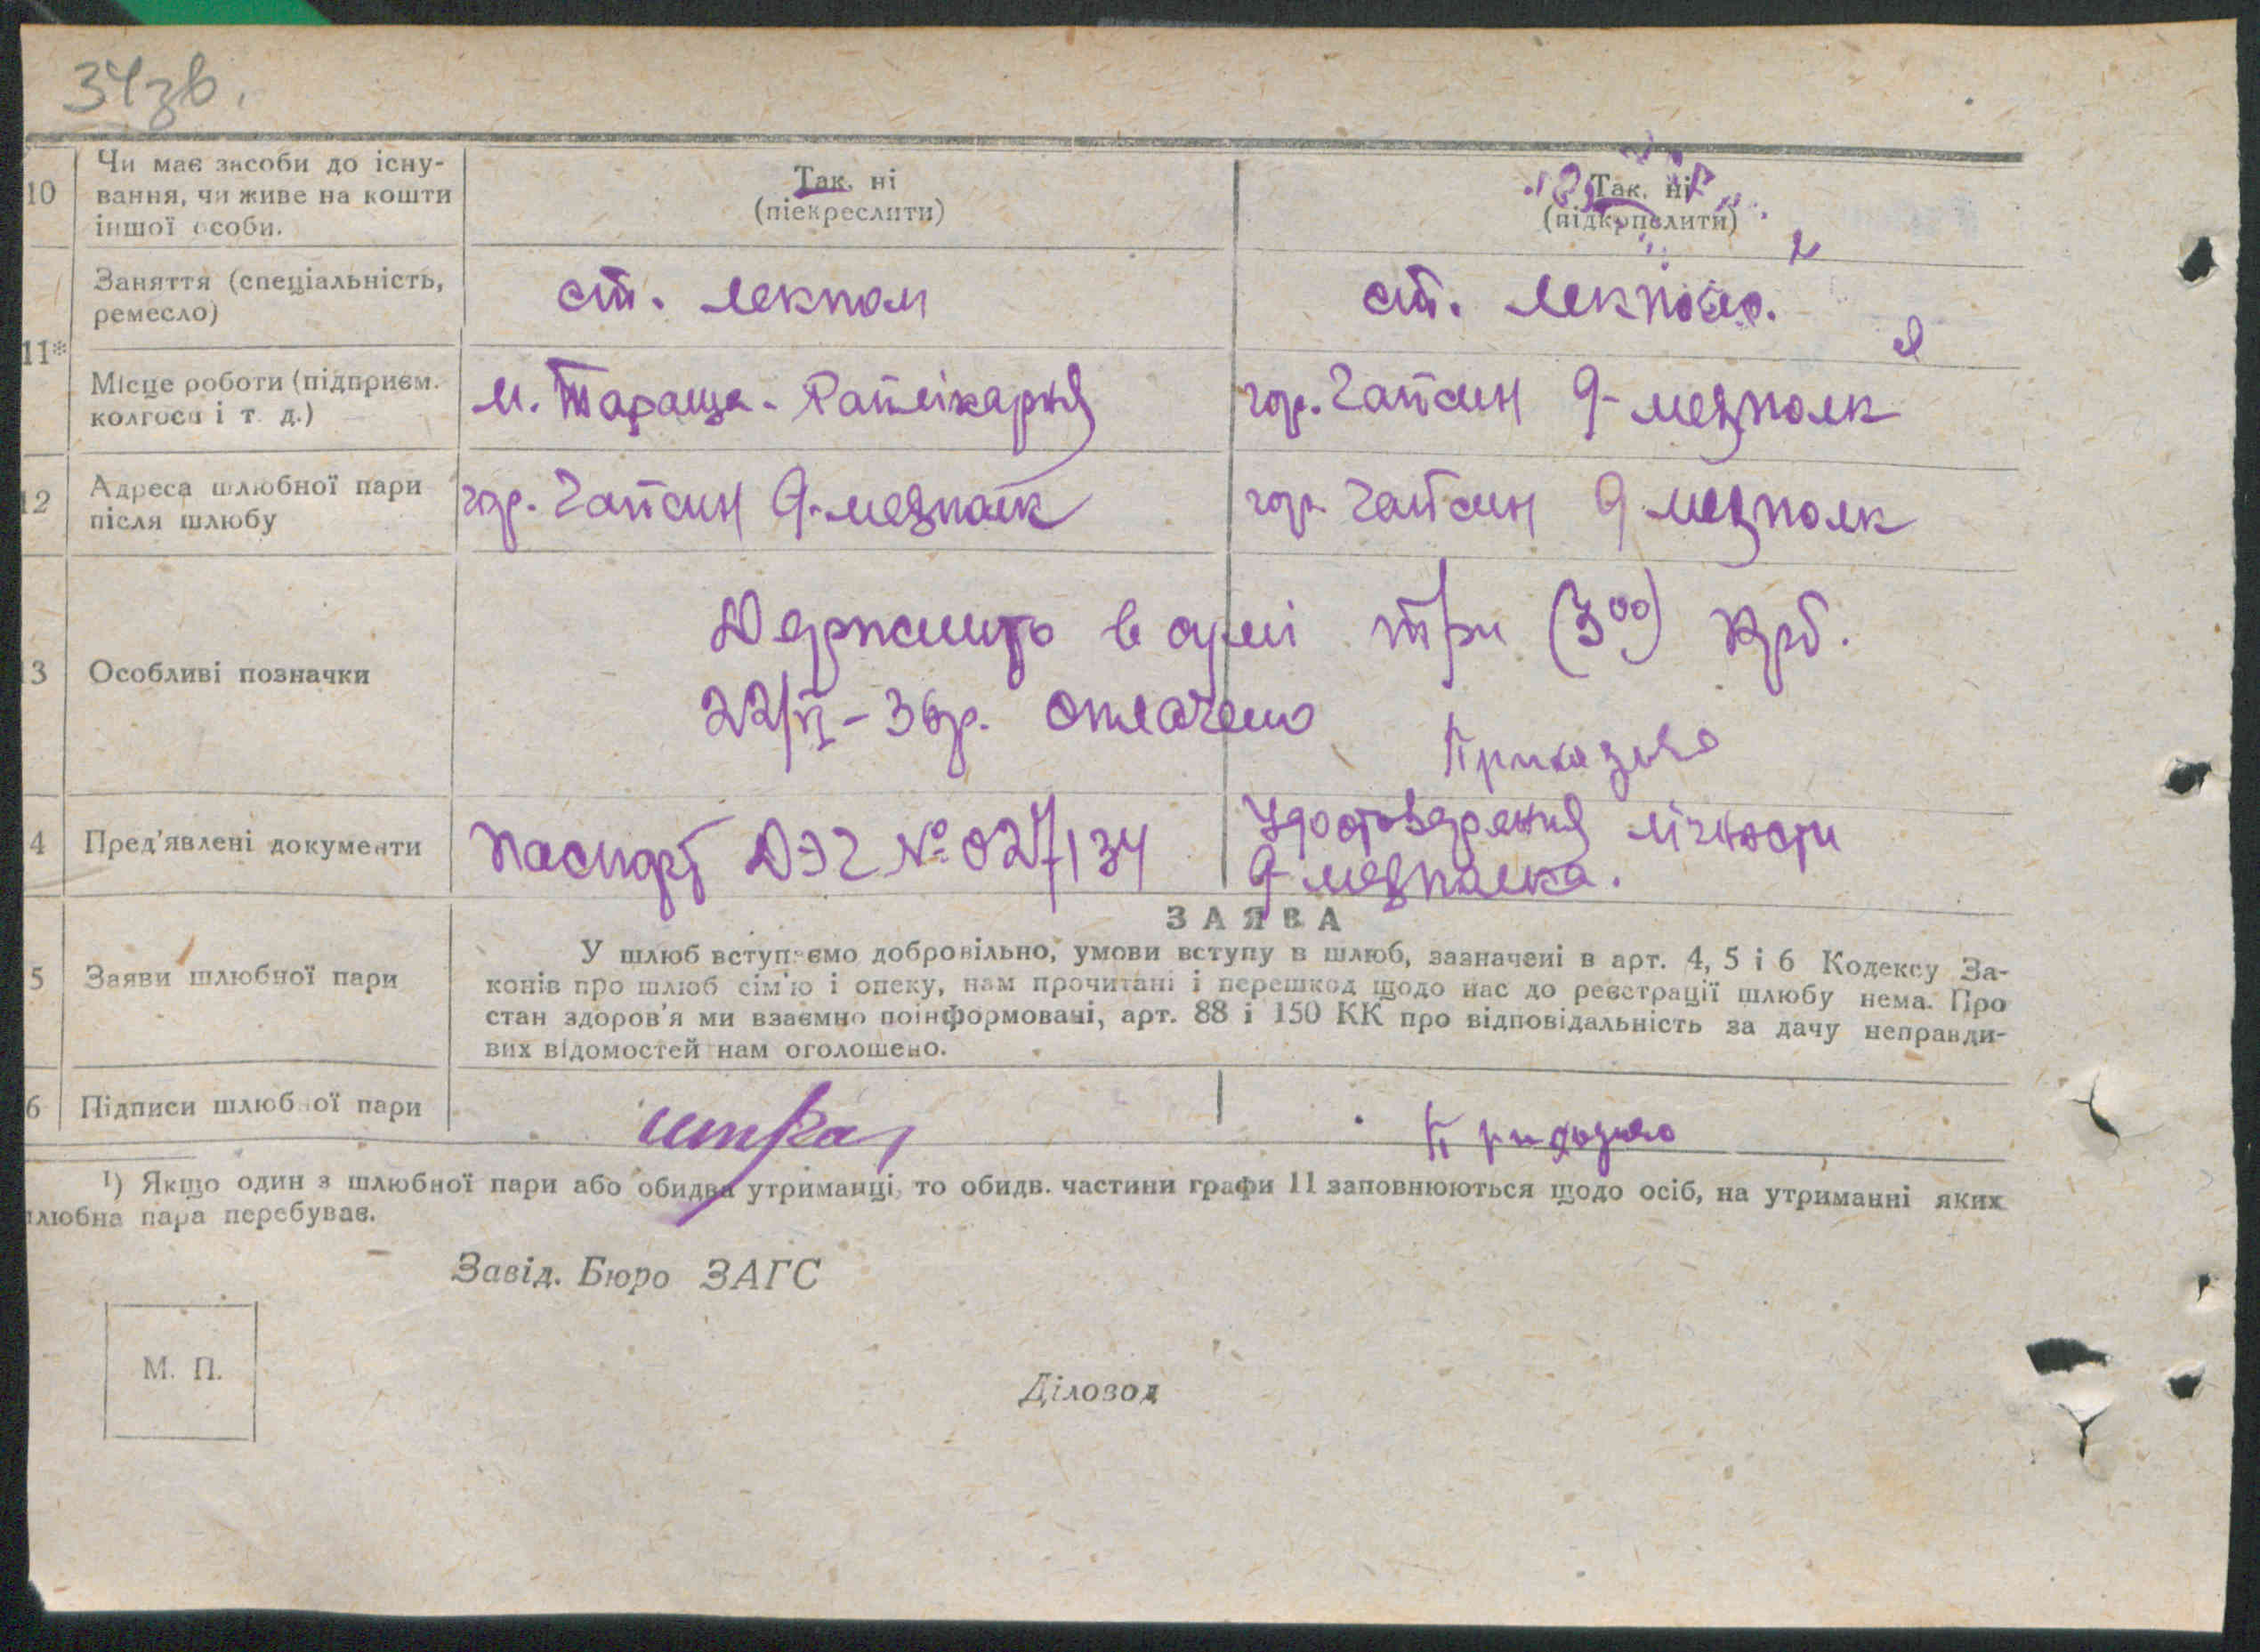 34зв.
10
Чи має засоби до існу-
вання, чи живе на кошти
іншої особи.
Так, ні
(піекреслити)
Так, ні
11*
Заняття (спеціальність,
ремесло)
ст. лекпом
ст. лекпом.
Місце роботи (підприєм.
колгосп і т. д.)
м. Тараща - Райлікарня
гор. Гайсин 9-медполк
12
Адреса шлюбної пари
після шлюбу
гор. Гайсин 9-медполк
гор. Гайсин 9 медполк
13
Особливі позначки
в сумі три (3⁰⁰) крб.
22/VI-36р. оплачено
4
Пред'явлені документи
Паспорт ДЭГ № 027134
Удостоверения лічности
9-медполка.
5
Заяви шлюбної пари
ЗАЯВА
У шлюб вступаємо добровільно, умови вступу в шлюб, зазначені в арт. 4, 5 і 6 Кодексу За-
конів про шлюб сім'ю і опеку, нам прочитані і перешкод щодо нас до реєстрації шлюбу нема. Про
стан здоров'я ми взаємно поінформовані, арт. 88 і 150 КК про відповідальність за дачу неправди-
вих відомостей нам оголошено.
6
Підписи шлюбної пари
¹) Якщо один з шлюбної пари або обидва утриманці, то обидв. частини графи 11 заповнюються щодо осіб, на утриманні яких
шлюбна пара перебуває.
Завід. Бюро ЗАГС
М. П.
Діловод